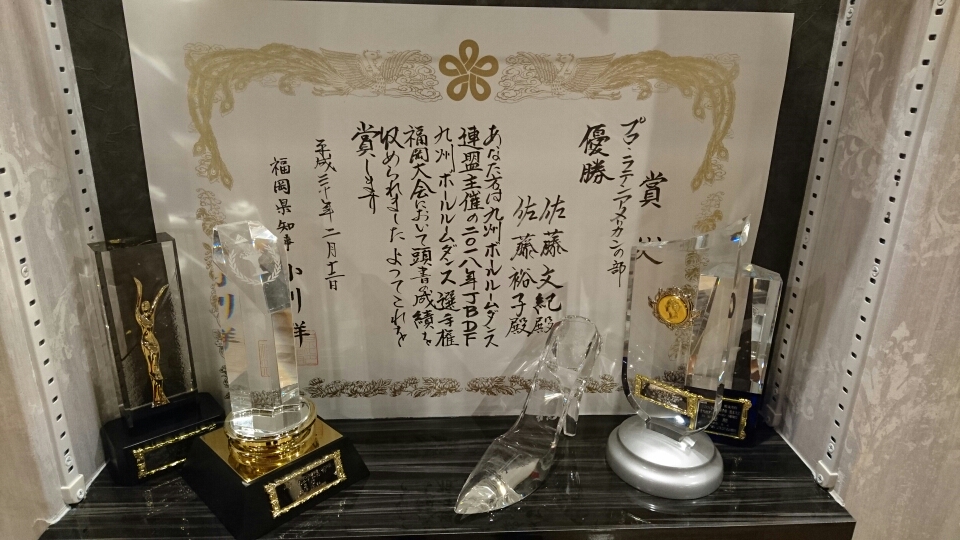 賞
プロ・ラテンアメリカンの部
優勝
佐藤文紀殿
佐藤裕子殿
あなた方は九州ボールルームダンス
連盟主催の二〇一八年JBDF
九州ボールルームダンス選手権
福岡大会において頭書の成績を
収められましたよってこれを
賞します
平成三十年二月十二日
福岡県知事 小川洋